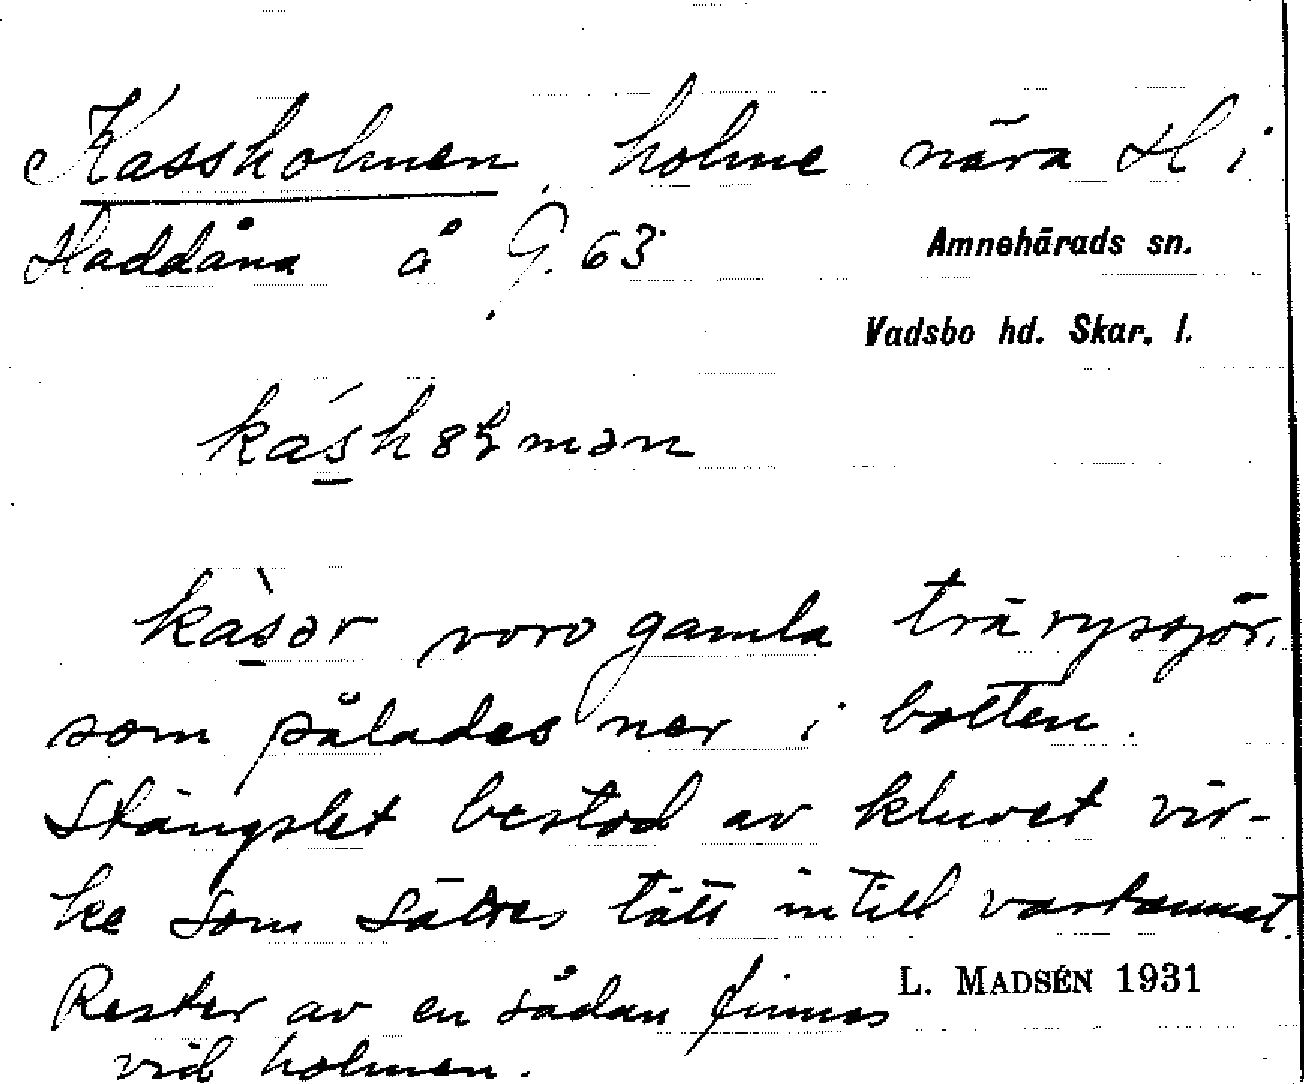 Kassholmen, holme nära H i
Haddåna å G. 63
Amnehärads sn.
Vadsbo hd. Skar. l.
kasər voro gamla träryssjor,
som pålades ner i botten.
Stängslet bestod av kluvet vir-
ke som sattes tätt intill vartannat.
Rester av en sådan finnes
L. MADSÉN 1931
vid holmen.